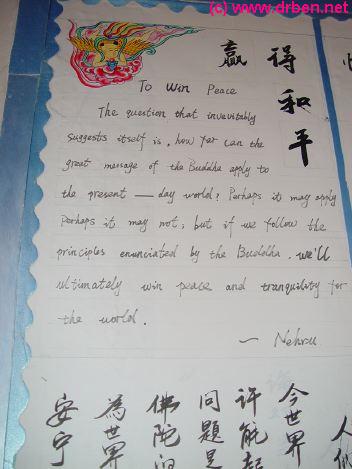 (c) www.drben.net
赢得和平
To Win Peace
The question that inevitably
suggests itself is, how far can the
great message of the Buddha apply to
the present — day world? Perhaps it may apply
Perhaps it may not, but if we follow the
principles enunciated by the Buddha. we'll
ultimately win peace and tranquility for
the world.
— Nehru
今世界
许能
问题是
佛陀
為世界
安宁